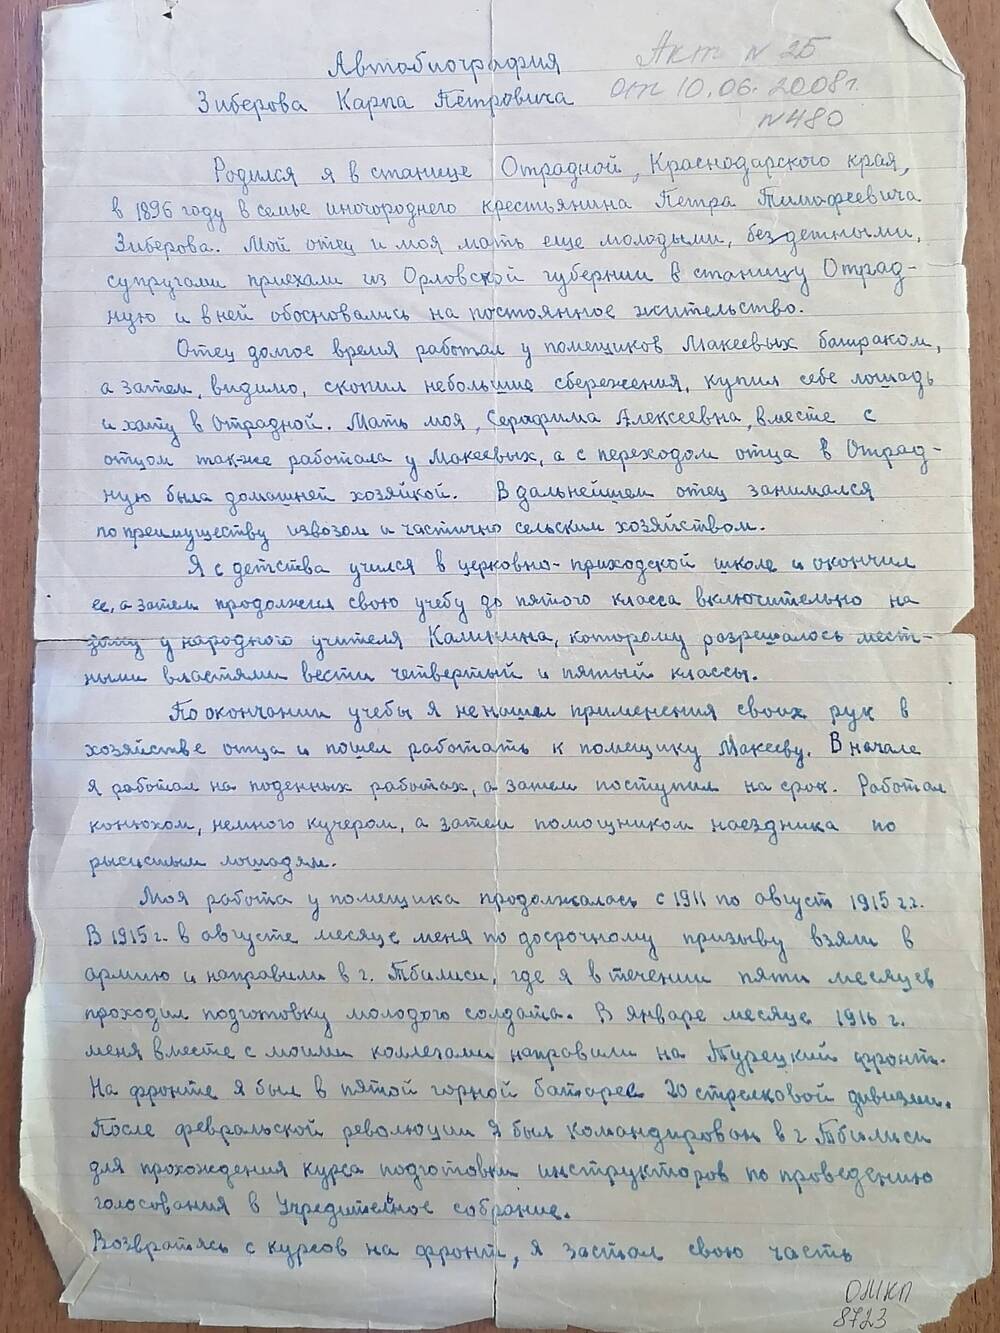 Автобиография
Зиберова Карпа Петровича
Акт № 25
от 10.06.2008г.
№480
Родился я в станице Отрадной, Краснодарского края,
в 1896 году в семье иногороднего крестьянина Петра Тимофеевича
Зиберова. Мой отец и моя мать еще молодыми, бездетными,
супругами приехали из Орловской губернии в станицу Отрад-
ную и в ней обосновались на постоянное жительство.
Отец долгое время работал у помещиков Макеевых батраком,
а затем, видимо, скопил небольшие сбережения, купил себе лошадь
и хату в Отрадной. Мать моя, Серафима Алексеевна, вместе с
отцом так-же работала у Макеевых, а с переходом отца в Отрад-
ную была домашней хозяйкой. В дальнейшем отец занимался
по преимуществу извозом и частично сельским хозяйством.
Я с детства учился в церковно-приходской школе и окончил
ее, а затем продолжил свою учебу до пятого класса включительно на
дому у народного учителя Калинина, которому разрешалось мест-
ными властями вести четвертый и пятый классы.
По окончании учебы я не нашел применения своих рук в
хозяйстве отца и пошел работать к помещику Макееву. В начале
я работал на поденных работах, а затем поступил на срок. Работал
конюхом, немного кучером, а затем помощником наездника по
рысистым лошадям.
Моя работа у помещика продолжалась с 1911 по август 1915 г.г.
В 1915 г. в августе месяце меня по досрочному призыву взяли в
армию и направили в г. Тбилиси, где я в течении пяти месяцев
проходил подготовку молодого солдата. В январе месяце 1916 г.
меня вместе с моими коллегами направили на Турецкий фронт.
На фронте я был в пятой горной батарее 20 стрелковой дивизии.
После февральской революции я был командирован в г. Тбилиси
для прохождения курса подготовки инструкторов по проведению
голосования в Учредительное собрание.
Возвратясь с курсов на фронт, я застал свою часть
ОМКП
8723